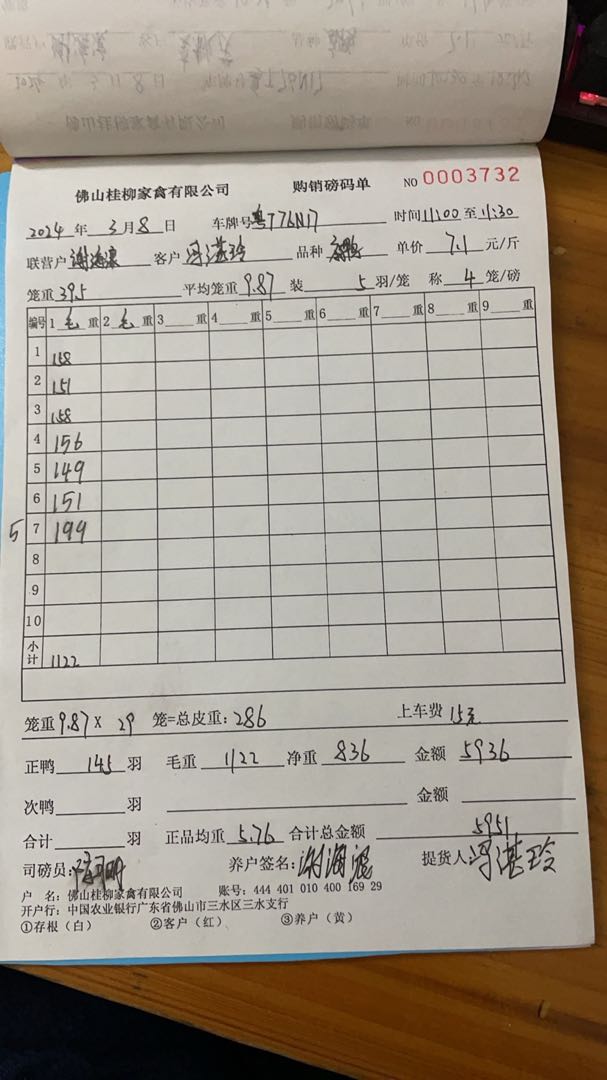 佛山桂柳家禽有限公司 购销磅码单 NO 0003732
2024 年 3 月 8 日 车牌号粤T76N17 时间 11:00 至 11:30
联营户 谢海滚 客户 冯湛玲 品种 单价 7.1 元/斤
笼重 39.5 平均笼重 9.87 装 5 羽/笼 称 4 笼/磅
编号 1 毛 重 2 毛 重 3 重 4 重 5 重 6 重 7 重 8 重 9 重
1 158
2 151
3 158
4 156
5 149
6 151
5 7 199
8
9
10
小计 1122
笼重 9.87 X 29 笼=总皮重: 286 上车费 15元
正鸭 145 羽 毛重 1122 净重 836 金额 5936
次鸭 羽 金额
合计 羽 正品均重 5.76 合计总金额 5951
司磅员: 养户签名: 谢海滚 提货人 冯湛玲
户 名: 佛山桂柳家禽有限公司 账号: 444 401 010 400 169 29
开户行: 中国农业银行广东省佛山市三水区三水支行
①存根（白） ②客户（红） ③养户（黄）